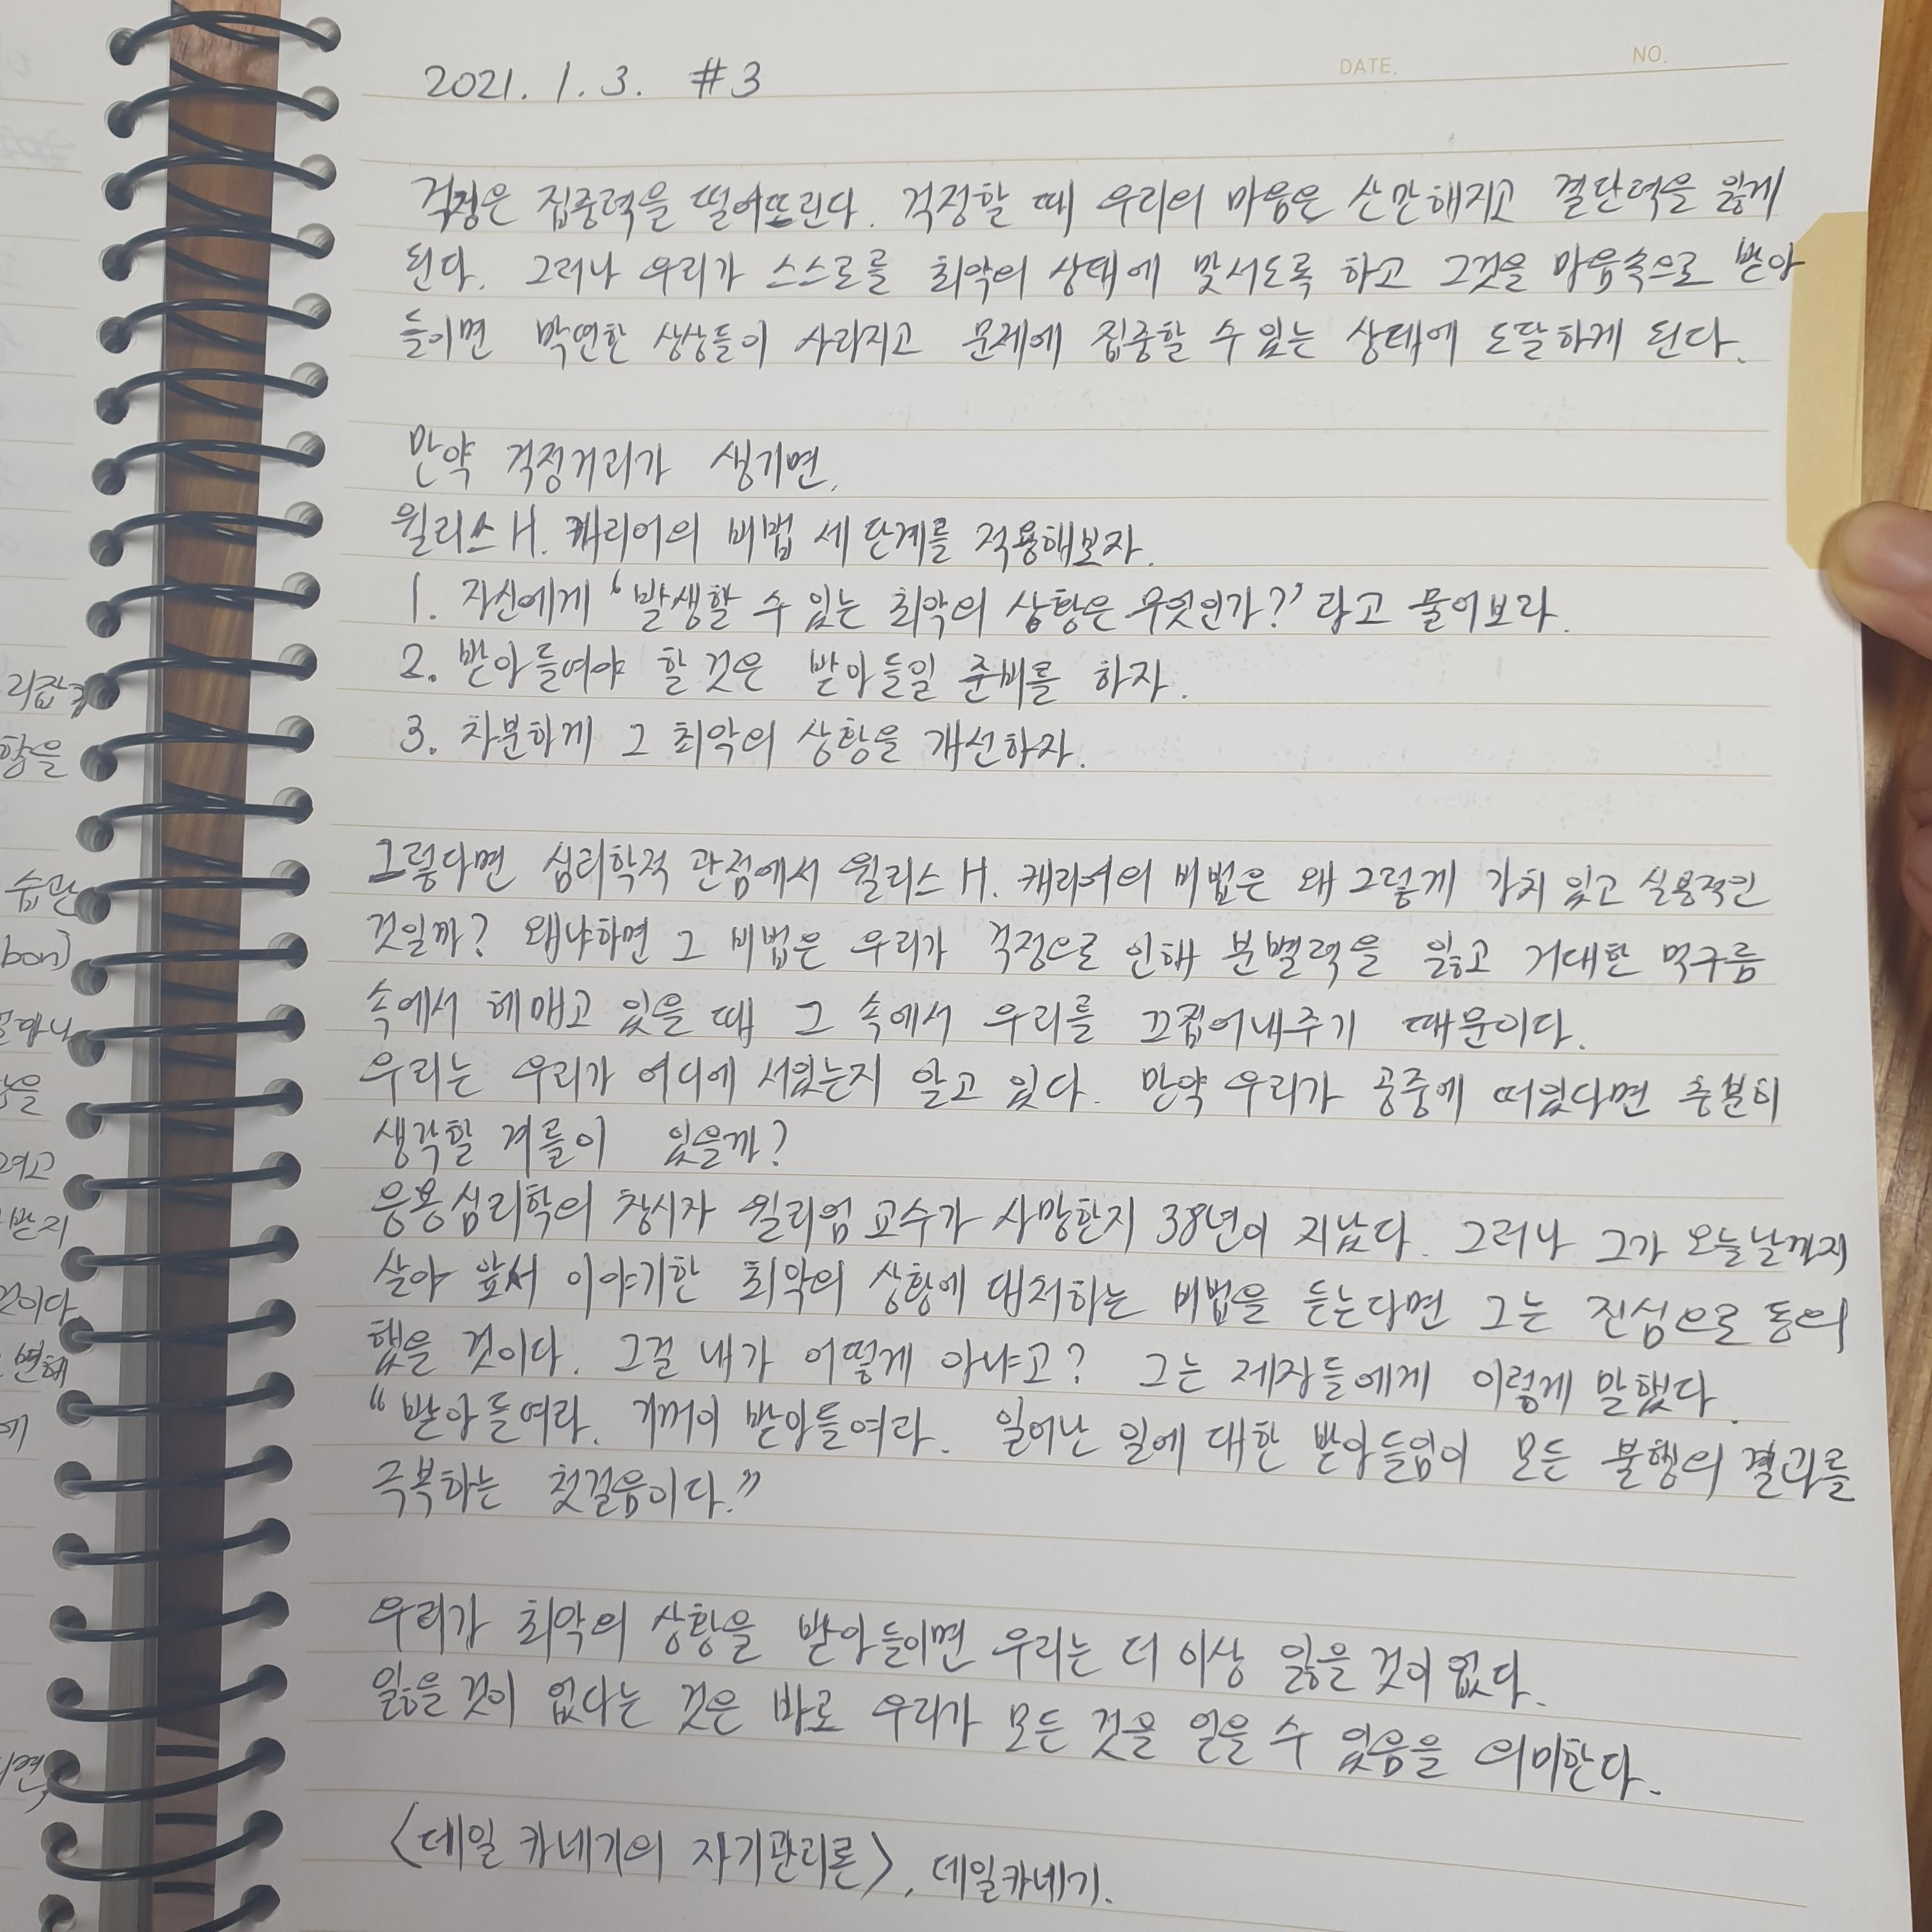 DATE.
NO.
2021. 1. 3. #3
걱정은 집중력을 떨어뜨린다. 걱정할 때 우리의 마음은 산만해지고 결단력을 잃게
된다. 그러나 우리가 스스로를 최악의 상태에 맞서도록 하고 그것을 마음속으로 받아
들이면 막연한 상상들이 사라지고 문제에 집중할 수 있는 상태에 도달하게 된다.
만약 걱정거리가 생기면,
윌리스 H. 캐리어의 비법 세 단계를 적용해보자.
1. 자신에게 '발생할 수 있는 최악의 상황은 무엇인가?' 라고 물어보라.
2. 받아들여야 할 것은 받아들일 준비를 하자.
3. 차분하게 그 최악의 상황을 개선하자.
그렇다면 심리학적 관점에서 윌리스 H. 캐리어의 비법은 왜 그렇게 가치 있고 실용적인
것일까? 왜냐하면 그 비법은 우리가 걱정으로 인해 분별력을 잃고 거대한 먹구름
속에서 헤매고 있을 때 그 속에서 우리를 끄집어내주기 때문이다.
우리는 우리가 어디에 서있는지 알고 있다. 만약 우리가 공중에 떠있다면 충분히
생각할 겨를이 있을까?
응용심리학의 창시자 윌리엄 교수가 사망한지 38년이 지났다. 그러나 그가 오늘날까지
살아 앞서 이야기한 최악의 상황에 대처하는 비법을 듣는다면 그는 진심으로 동의
했을 것이다. 그걸 내가 어떻게 아냐고? 그는 제자들에게 이렇게 말했다.
"받아들여라. 기꺼이 받아들여라. 일어난 일에 대한 받아들임이 모든 불행의 결과를
극복하는 첫걸음이다."
우리가 최악의 상황을 받아들이면 우리는 더 이상 잃을 것이 없다.
잃을 것이 없다는 것은 바로 우리가 모든 것을 얻을 수 있음을 의미한다.
<데일 카네기의 자기관리론>, 데일카네기.